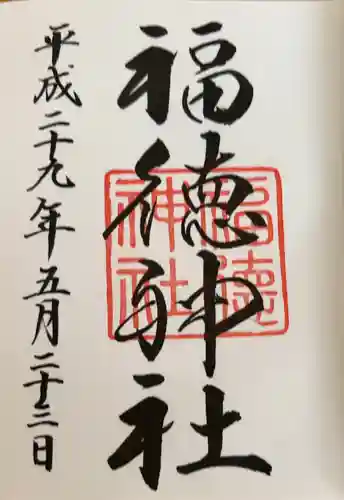 福徳神社
福徳神社
平成二十九年五月二十三日